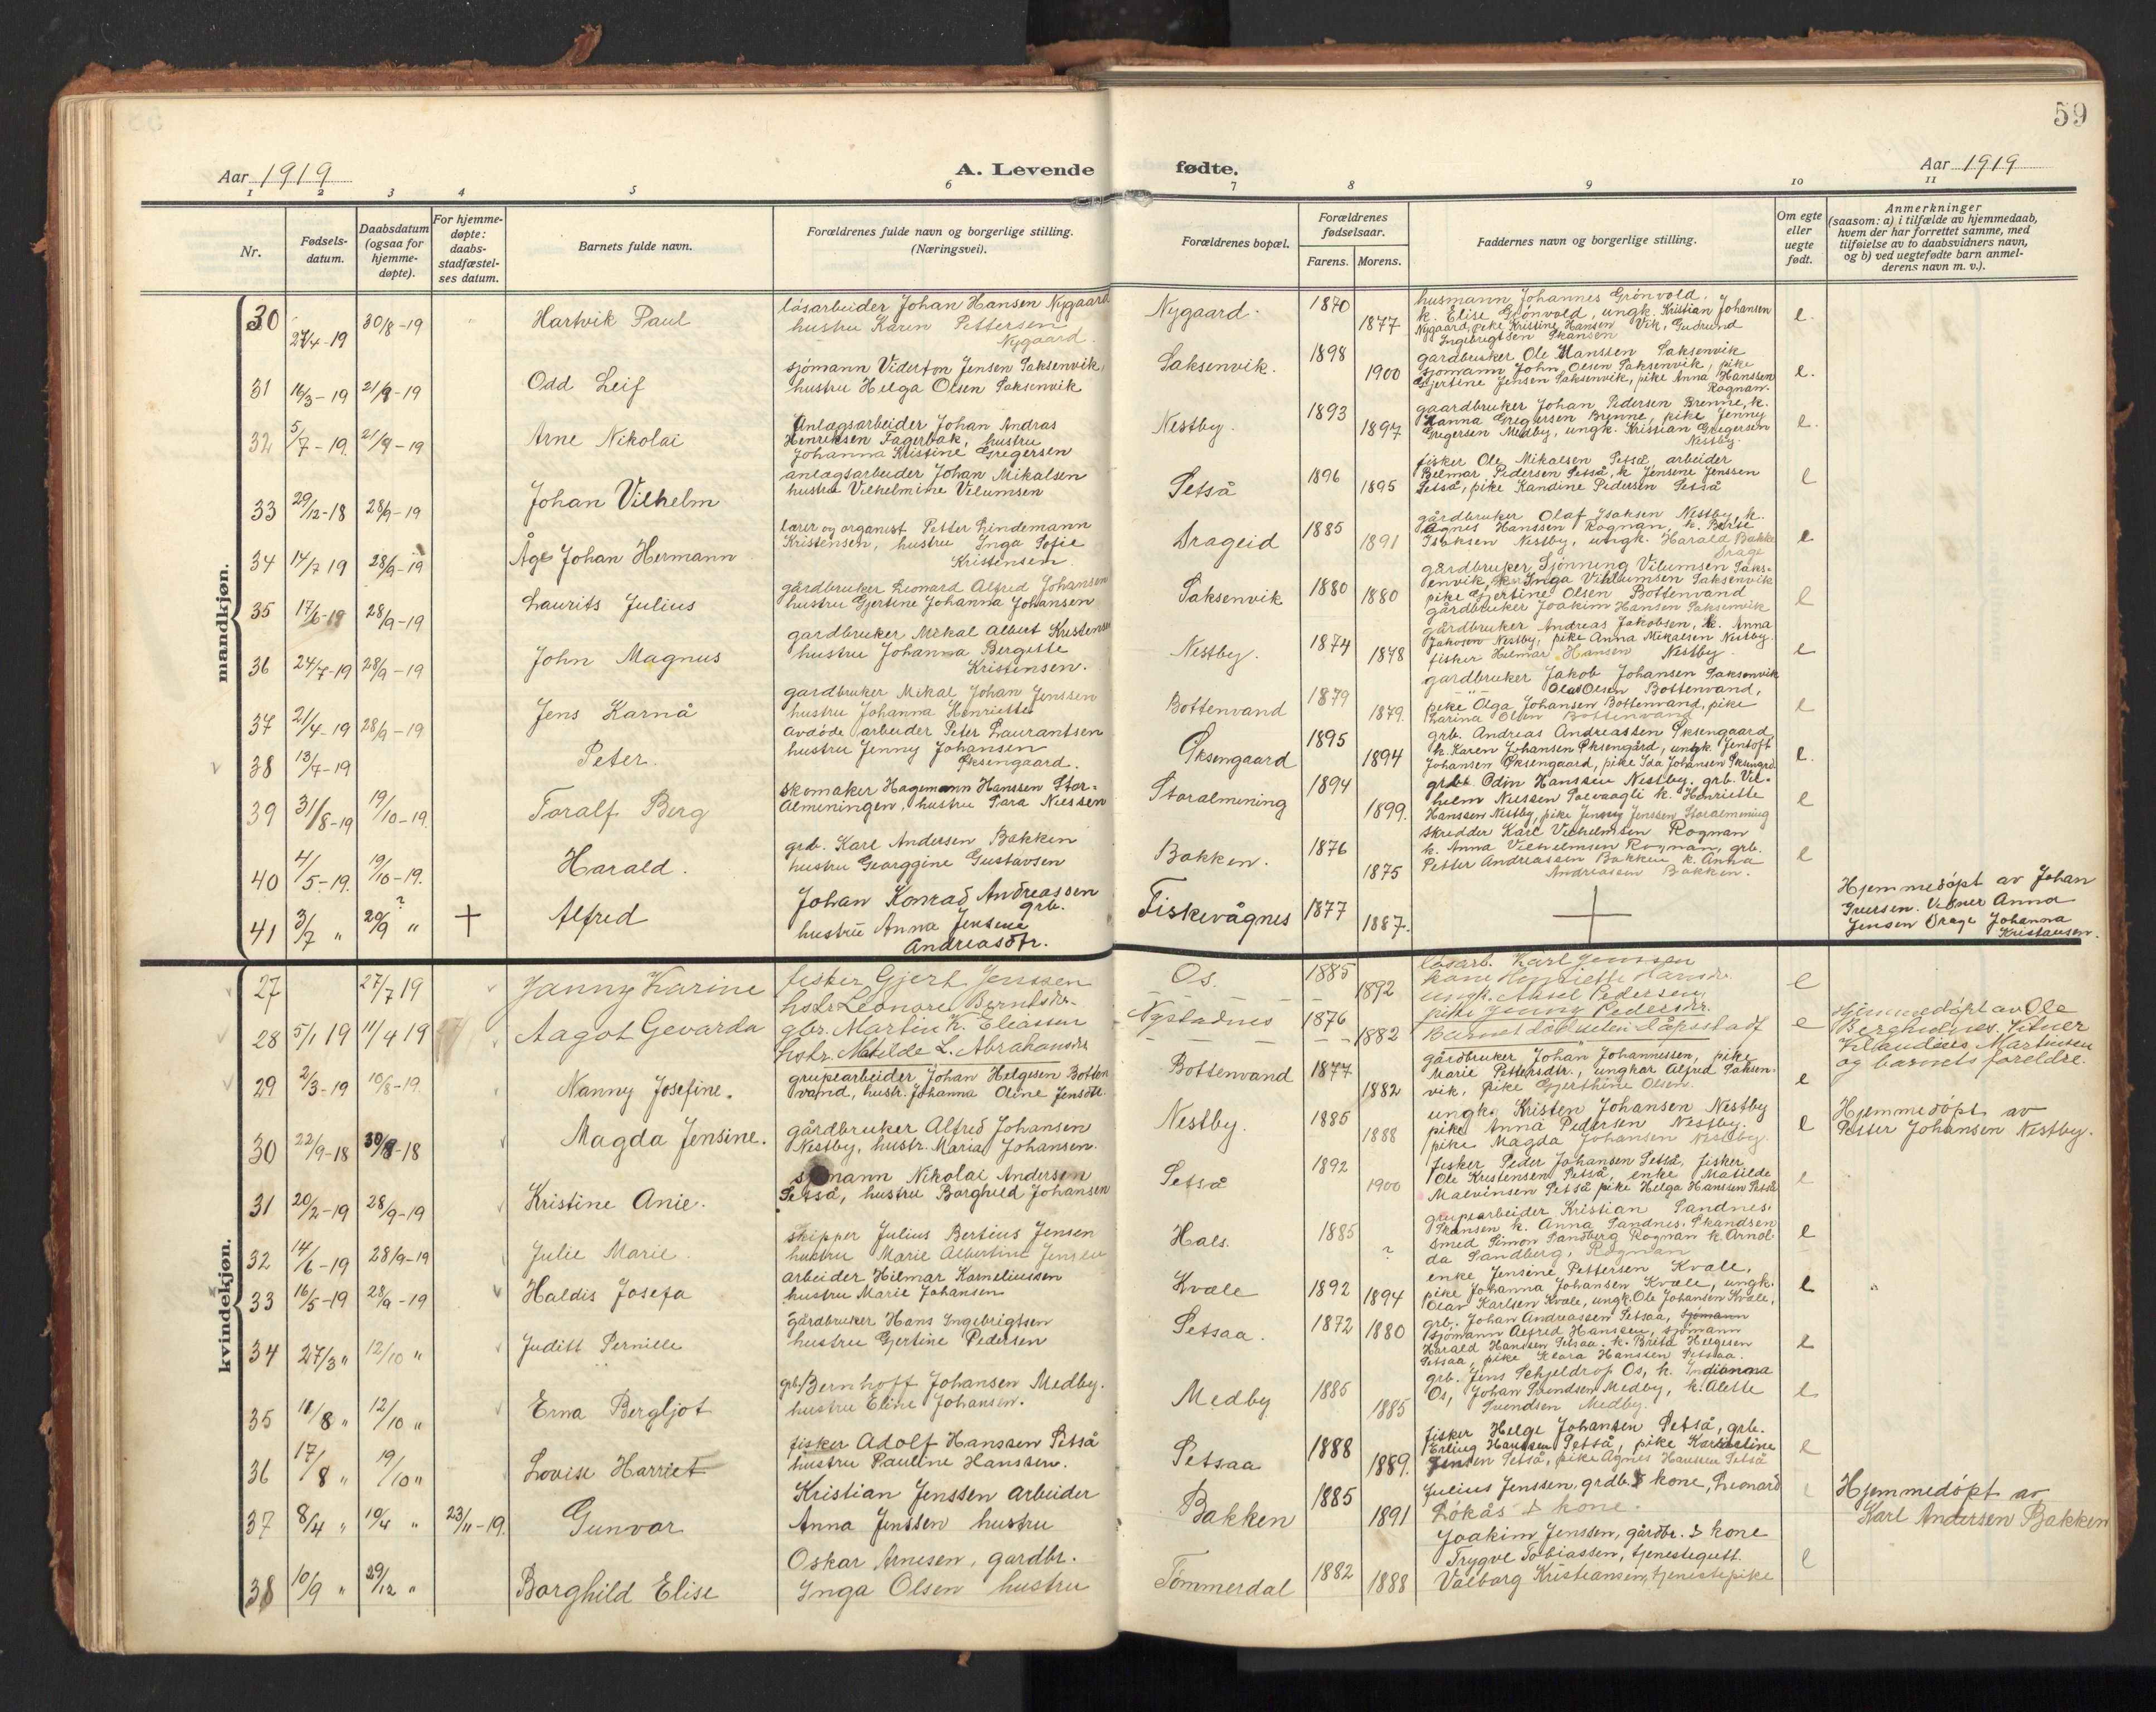 59
Aar 1919
A. Levende
fødte.
Aar 1919
1 2 3 4 5 6 7 8 9 10 11
Nr.
Fødsels-
datum.
Daabsdatum
(ogsaa for
hjemme-
døpte).
For hjemme-
døpte:
daabs-
stadfæstel-
ses datum.
Barnets fulde navn.
Forældrenes fulde navn og borgerlige stilling.
(Næringsvei).
Forældrenes bopæl.
Forældrenes
fødselsaar.
Farens. Morens.
Faddernes navn og borgerlige stilling.
Om egte
eller
uegte
født.
Anmerkninger
(saasom: a) i tilfælde av hjemmedaab,
hvem der har forrettet samme, med
tilføielse av to daabsvidners navn,
og b) ved uegtefødte barn anmel-
derens navn m. v.).
mandkjøn.
30 27/4-19 30/8-19 Hartvik Paul
løsarbeider Johan Hansen Nygaard
hustru Karen Pettersen
Nygaard.
Nygaard. 1870 1877
husmann Johannes Grønvold.
k. Elise Grønvold, ungk. Kristian Johansen
Nygaard, pike Kristine Hansen Vik, Gudrund
Ingebrigtsen Skansen
e.
31 16/3-19 21/9-19 Odd Leif
sjømann Viderton Jensen Saksenvik,
hustru Helga Olsen Saksenvik
Saksenvik. 1898 1900
gardbruker Ole Hanssen Saksenvik
sjømann John Olsen Saksenvik, pike
Gjertine Jensen Saksenvik, pike Anna Hanssen
Rognan.
e.
32 5/7-19. 21/9-19 Arne Nikolai
Anlægsarbeider Johan Andras
Henriksen Fagerbak, hustru
Johanna Kristine Gregersen
Nestby. 1893 1897
gaardbruker Johan Pedersen Brenne, k.
Hanna Gregersen Brenne, pike Jenny
Gregersen Medby, ungk. Kristian Gregersen
Nestby.
e.
33 29/12-18 28/9-19 Johan Vilhelm
anlægsarbeider Johan Mikalsen
hustru Vilhelmine Vilumsen
Setså 1896 1895
fisker Ole Mikalsen Setså, arbeider
Belmar Pedersen Setså, k Jensene Jenssen
Setså, pike Kandine Pedersen Setså
e
34 14/7 19 28/9-19 Åge Johan Hermann
lærer og organist Petter Lindemann
Kristensen, hustru Inga Sofie
Kristensen.
Drageid 1885 1891
gårdbruker Olaf Isaksen Nestby, k.
Agnes Hanssen Rognan, k. Berte
Isaksen Nestby, ungk. Harald Bakke
Drage
e
35 17/6-19 28/9-19 Laurits Julius
gårdbruker Leonard Alfred Johansen
hustru Gjertine Johanna Johansen
Saksenvik 1880 1880
gårdbruker Sjønning Vilumsen Saks-
envik, k. Inga Vilhlumsen Saksenvik
pike Gjertine Olsen Bottenvand
gårdbruker Joakim Hansen Saksenvik
e
36 24/7-19 28/9-19 John Magnus
gardbruker Mikal Albert Kristensen
hustru Johanna Bergette
Kristensen.
Nestby. 1874 1878
gårdbruker Andreas Jakobsen, k. Anna
Jakosen Nestby, pike Anna Mikalsen Nestby.
fisker Hilmar Hansen Nestby.
e
37 21/4-19 28/9-19 Jens Karnå
gardbruker Mikal Johan Jenssen
hustru Johanna Henriette
Bottenvand 1879 1879.
gardbruker Jakob Johansen Saksenvik
-"- Olav Olsen Bottenvand,
pike Olga Johansen Bottenvand, pike
Karina Olsen Bottenvand
e
38 13/7-19 Peter.
avdøde arbeider Peter Laurantsen
hustru Jenny Johansen
Øksengaard.
Øksengaard 1895 1894
grb. Andreas Andreassen Øksengaard,
k. Karen Johansen Øksengård, ungk. Jentoft
Johansen Øksengaard, pike Ida Johansen Øksengrd
e.
39 31/8-19 19/10-19. Toralf Berg
Skomaker Hagemann Hanssen Stor-
Almeningen, hustru Sara Nilssen
Storalmening 1894 1899.
grbr Odin Hanssen Nestby. grb. Vil-
helm Nilssen Saevaagli k. Henriette
Hanssen Nestby, pike Jenny Jenssen Storalmening
e
40 4/5-19. 19/10-19. Harald.
grb. Karl Andersen Bakken
hustru Georggine Gustavsen
Bakken. 1876 1875
skredder Karl Vilhelmsen Rognan
k. Anna Vilhelmsen Rognan, grb.
Petter Andreassen Bakken k. Anna
Andreassen Bakken.
e
41 3/7 " 20/9 ? " + Alfred
Johan Konrad Andreassen
grb.
hustru Anna Jensine
Andreasdtr.
Fiskevågnes 1877 1887.
+
Hjemmedøpt av Johan
Iversen. Vidner Anna
Jensen Drage Johanna
Kristausen.
kvindekjøn.
27 27/7 19 Janny Karine
fisker Gjert Jenssen
hstr Leonore Berntsdr.
Os. 1885 1892
løsarb. Karl Jenssen
kone Henriette Hansdr.
ungk. Aksel Pedersen,
pike Jenny Pedersdr.
e
28 5/1 19 11/4 19 Aagot Gevarda
gbr. Martin K. Eliassen
hstr. Matilde L. Abrahamsdr
Nystadnes 1876 1882
Barnet død uten dåpsstadf
e
Hjemmedøpt av Ole
og barnets foreldre.
29 2/3-19 10/8-19. Nanny Josefine.
grupearbeider Johan Helgesen Botten
vand, hustr. Johanna Oline Jensdtr.
Bottenvand 1877 1882
gårdbruker Johan Johannessen, pike
Marie Pettersdtr., ungkar Alfred Saksen-
vik, pike Gjerthine Olsen.
e
30 22/9-18 30/8-18 Magda Jensine.
gårdbruker Alfred Johansen
Nestby, hustr. Maria Johansen.
Nestby. 1885 1888
ungk. Kristen Johansen Nestby
pike Anna Pedersen Nestby.
pike Magda Johansen Nestby.
e
Hjemmedøpt av
Petter Johansen Nestby.
31 20/2-19 28/9-19 Kristine Anie.
sjømann Nikolai Andersen
Setså, hustru Borghild Johansen
Setså 1892 1900
fisker Peder Johansen Setså, fisker
Ole Kristensen Setså, enke Matilde
Malvinsen Setså pike Helga Hanssen Setså
e
32 14/6-19 28/9-19 Julie Marie.
Skipper Julius Bertius Jensen
hustru Marie Albertine Jensen
Hals. 1885 ?
grupearbeider Kristian Sandnes.
Skansen k. Anna Sandnes. Skandsen
smed Simon Sandberg Rognan k. Arnol-
da Sandberg, Rognan
e
33 16/5-19 28/9-19 Haldis Josefa
arbeider Hilmar Korneliussen
hustru Marie Johansen
Kvæle 1892 1894
enke Jensine Pettersen Kvæle,
pike Johanna Johansen Kvæle, ungk.
Olav Karlsen Kvæle, ungk. Ole Johansen Kvæle,
e
34 27/3 " 12/10 " Juditt Pernille
Gårdbruker Hans Ingebrigtsen
hustru Gjertine Pedersen
Setsaa. 1872 1880
grb. Johan Andreassen Setsaa, sjømann
sjømann Alfred Hanssen, sjømann
Harald Hanssen Setsaa. k. Brita Helgesen
Setsaa, pike Klara Hanssen Setsaa.
e
35 11/8 " 12/10 " Erna Bergljot
grb. Bernhoff Johansen Medby.
hustru Eline Johansen.
Medby 1885 1885
grb. Jens Schjeldrop Os, k. Indianna
Os, Johan Svendsen Medby, k. Alette
Svendsen Medby.
e
36 17/8 " 19/10 " Lovise Harriet
fisker Adolf Hanssen Setså
hustru Pauline Hanssen.
Setsaa 1888 1889.
fisker Helge Johansen Setså, grb.
Erling Hanssen Setså, pike Karoline
Jensen Setså, pike Agnes Hanssen Setså
e
37 8/4 " 10/4 " 23/11-19. Gunvor
Kristian Jenssen arbeider
Anna Jenssen hustru
Bakken 1885 1891
Julius Jenssen, grdb. & kone, Leonard
Løkås & kone.
e
Hjemmedøpt av
Karl Andersen Bakken
38 10/9 " 29/12 " Borghild Elise
Oskar Arnesen, gardbr.
Inga Olsen hustru
Tømmerdal 1882 1888
Joakim Jenssen, gårdbr. & kone
Trygve Tobiassen, tjenestegutt.
Valborg Kristiansen, tjenestepike
e